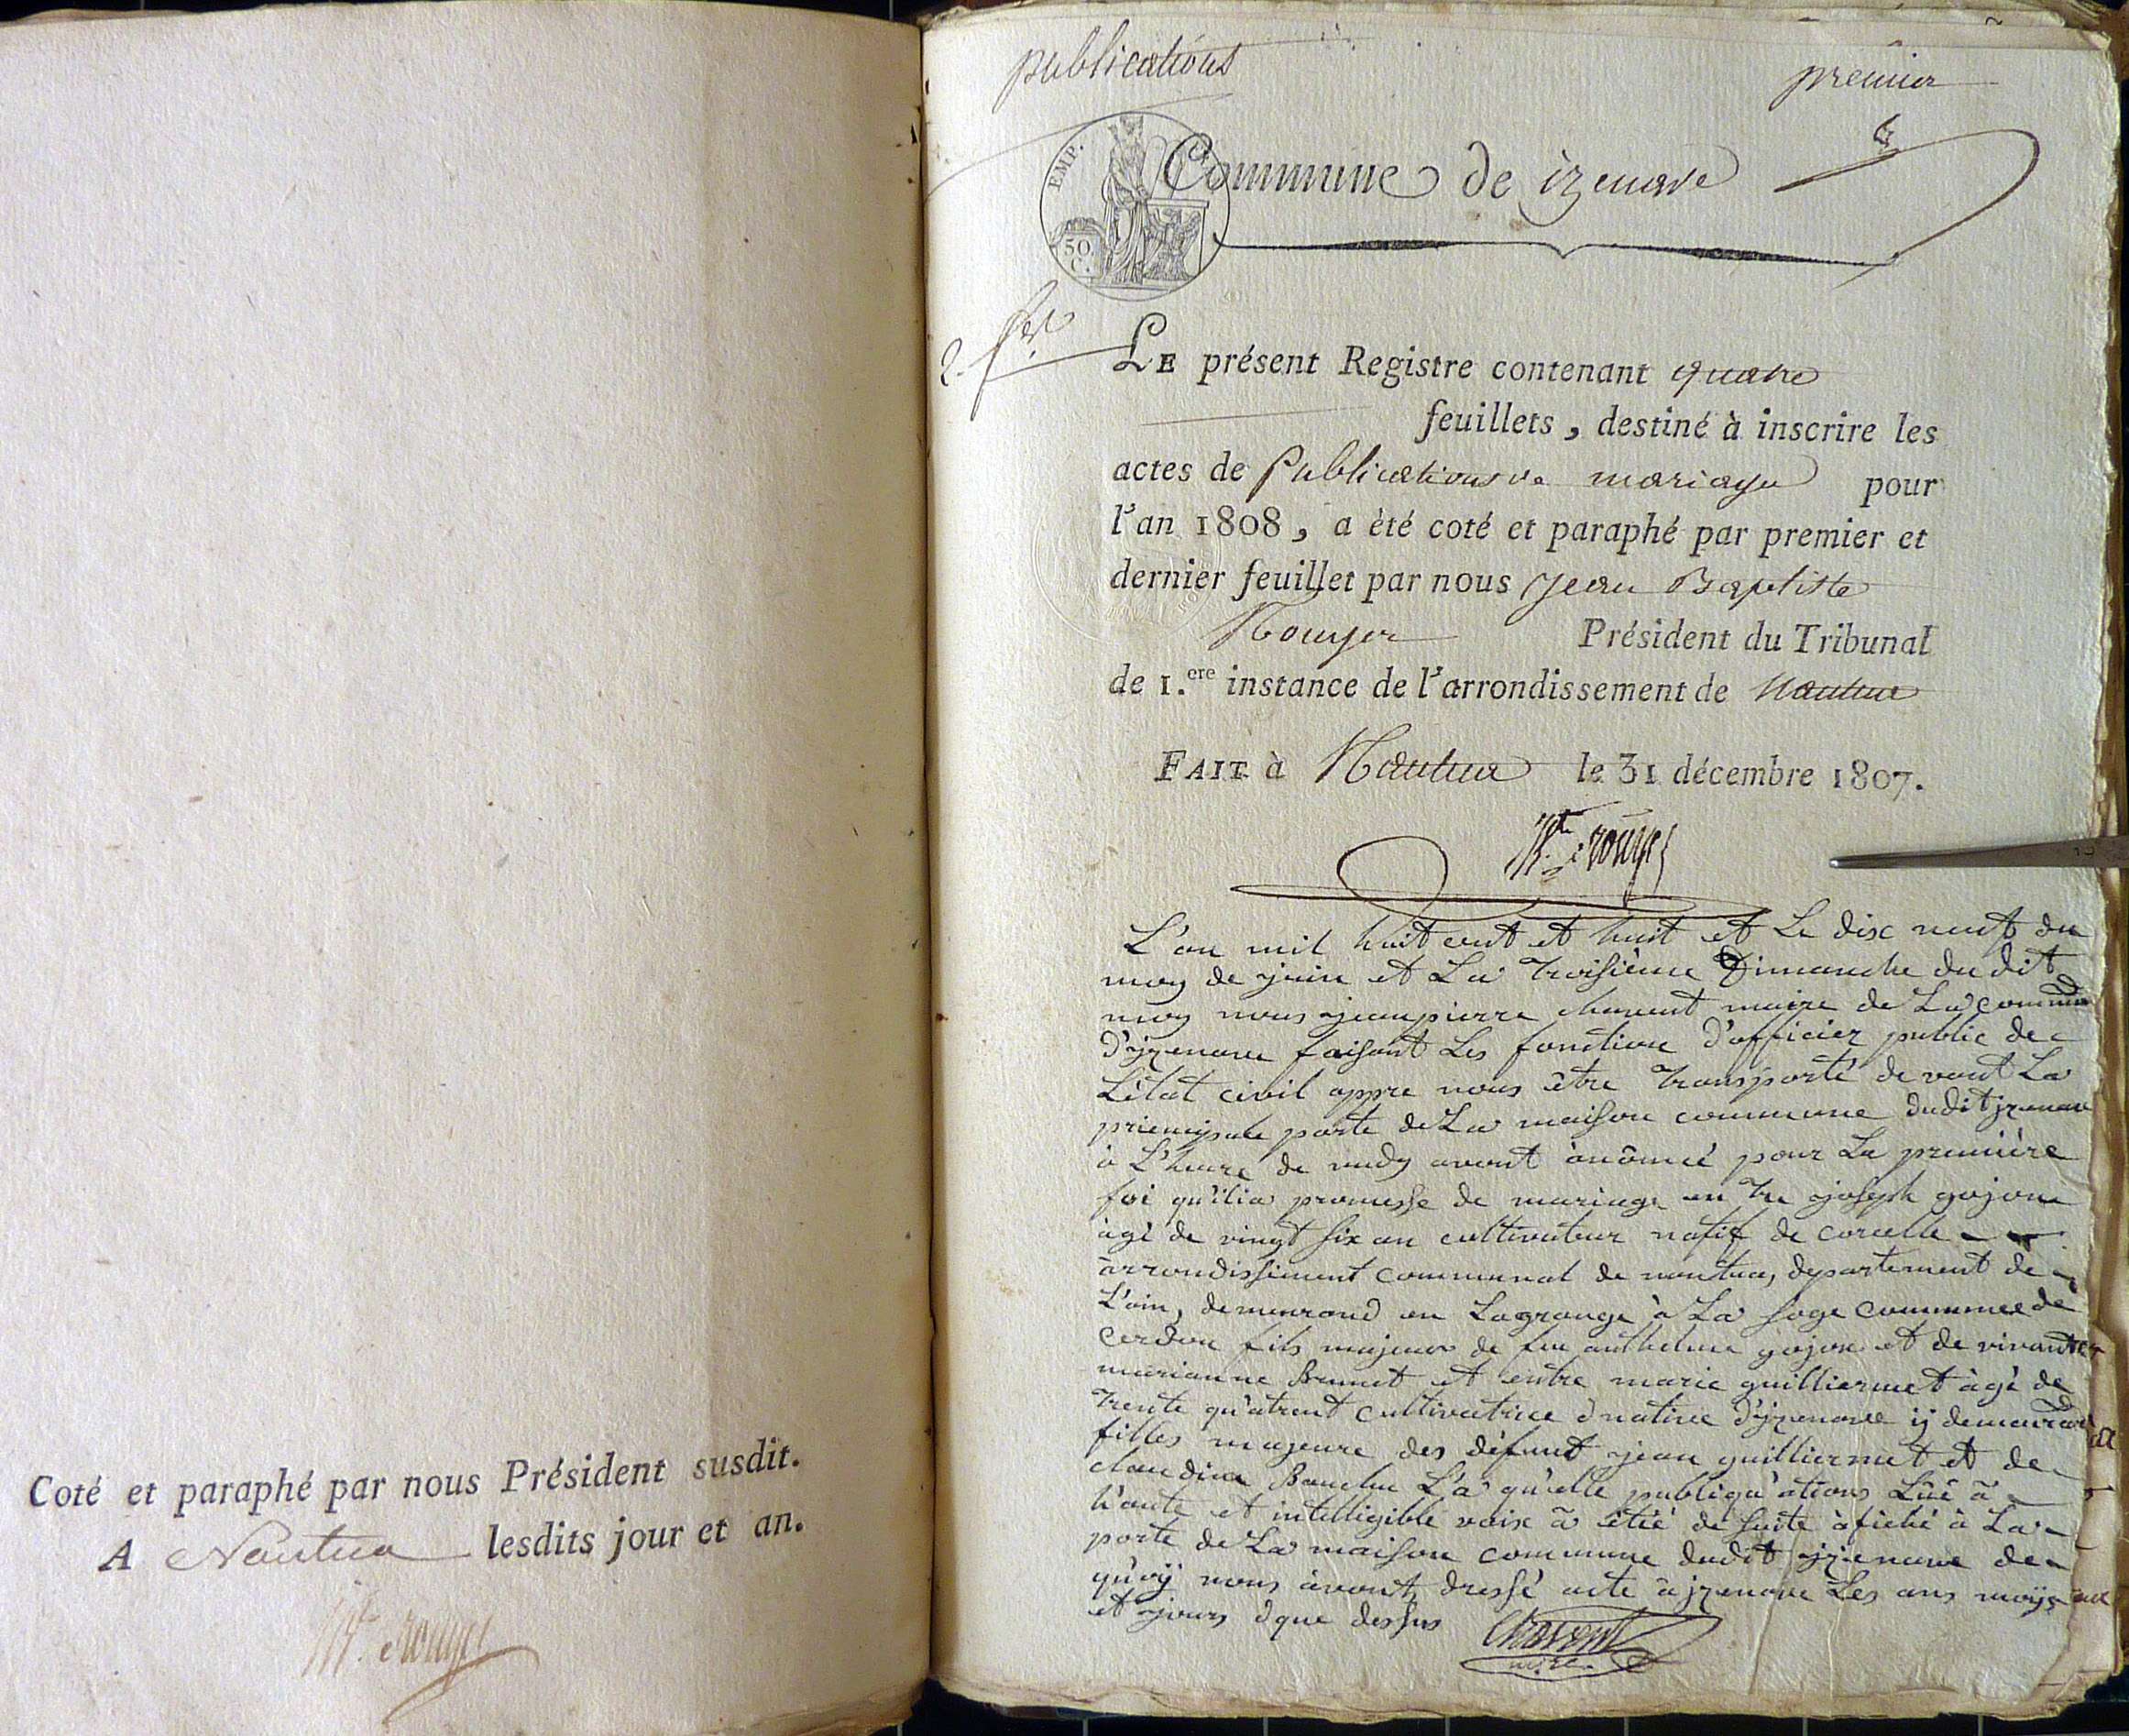 Coté et paraphé par nous Président susdit.
A Nantua lesdits jour et an.
publications
premier
EMP.
50
C.
Commune de izenave
LE présent Registre contenant quatre
feuillets, destiné à inscrire les
actes de Publications de mariage pour
l'an 1808, a èté coté et paraphé par premier et
dernier feuillet par nous Jean Baptiste
Rouyer Président du Tribunal
de 1.ere instance de l'arrondissement de Nantua
FAIT à Nantua le 31 décembre 1807.
L'an mil huit cent et huit et Le dix neuf du
moy de juin et La troisième Dimanche du dit
moy nous jean pierre chavent maire de La commune
D'jzenave faisant Les fonctions D'officier public de
L'état civil appre nous être transporté devant La
principale porte de La maison commune dudit jzenave
à L'heure de midy avont anôncé pour La première
foi qu'ilia promesse de mariage entre joseph gojon
àgé de vingt six an cultivateur natif de corcelle
arrondissiment communal de nantua, departement de
L'ain, demeurand en Lagrange à La foge commune de
Cerdon fils majeur de feu anthelme gojon et de vivante
marianne Brunet et entre marie guilliermet àgé de
trente qu'atre ant cultivatrice natives D'jzenave ij demeurant
filles majeure des défunt jean guilliermet et de
claudine La qu'elle publiqu'ations Lûe à
h'aute et intelligible voix à étié de suite àfiché à La
porte de La maison commune dudit jzenave de
qu'oÿ nous àvont dressé acte à jzenave Les ans moÿs
et jours que dessus Chavent
maire